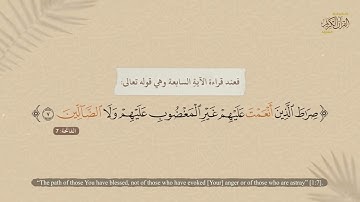 القرآن الكريم
فعند قراءة الآية السابعة وهي قوله تعالى:
﴿صِرَاطَ الَّذِينَ أَنْعَمْتَ عَلَيْهِمْ غَيْرِ الْمَغْضُوبِ عَلَيْهِمْ وَلَا الضَّالِّينَ ﴿٧﴾﴾
الفاتحة: 7
“The path of those You have blessed, not of those who have evoked [Your] anger or of those who are astray” [1:7].